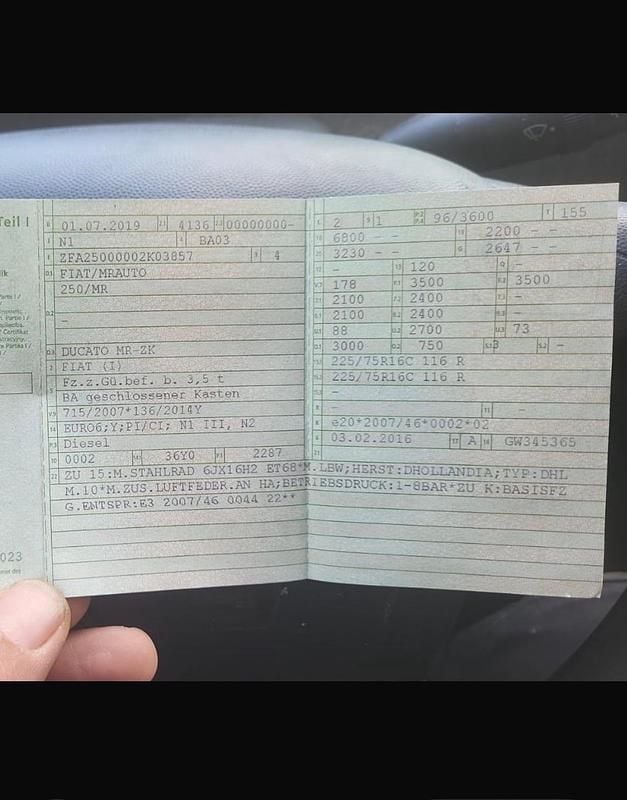 Teil I
B 01.07.2019 2.1 4136 2.2 00000000-
J N1 4 BA03
E ZFA25000002K03857 3 4
D.1 FIAT/MRAUTO
250/MR
D.2
-
D.3 DUCATO MR-ZK
2 FIAT (I)
5 Fz.z.Gü.bef. b. 3,5 t
BA geschlossener Kasten
V.9 715/2007*136/2014Y
14 EURO6;Y;PI/CI; N1 III, N2
P.3 Diesel
10 0002 14.1 36Y0 P.1 2287
L 2 9 1 P.2 P.4 96/3600 T 155
18 6800 - - 19 2200 - -
20 3230 - - G 2647 - -
12 - 13 120 Q -
V.7 178 F.1 3500 F.2 3500
7.1 2100 7.2 2400 7.3 -
8.1 2100 8.2 2400 8.3 -
U.1 88 U.2 2700 U.3 73
O.1 3000 O.2 750 S.1 3 S.2 -
15.1 225/75R16C 116 R
15.2 225/75R16C 116 R
15.3 -
R - 11 -
K e20*2007/46*0002*02
6 03.02.2016 17 A 16 GW345365
21
22 ZU 15:M.STAHLRAD 6JX16H2 ET68*M.LBW;HERST:DHOLLANDIA;TYP:DHL
M.10*M.ZUS.LUFTFEDER.AN HA;BETRIEBSDRUCK:1-8BAR*ZU K:BASISFZ
G.ENTSPR:E3 2007/46 0044 22**
023